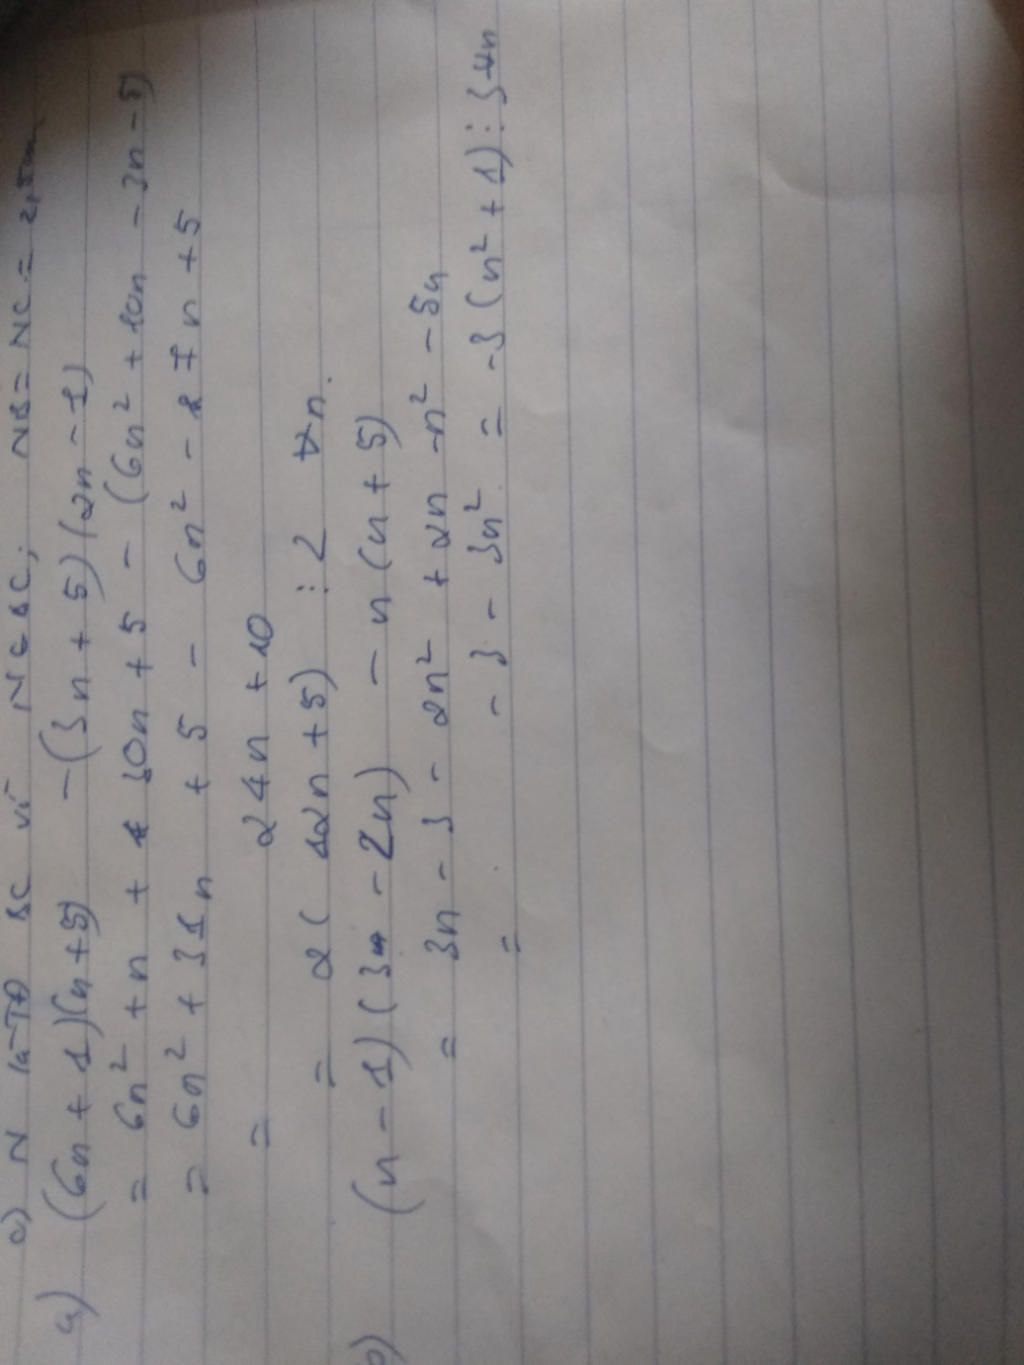 c) N là TĐ BC vì N∈BC; NB = NC = 2,5cm
a) (6n + 1)(n + 5) - (3n + 5)(2n - 1)
= 6n² + n + 30n + 5 - (6n² + 10n - 3n - 5)
= 6n² + 31n + 5 - 6n² - 7n + 5
= 24n + 10
= 2(12n + 5) ⋮ 2 ∀n.
b) (n - 1)(3 - 2n) - n(n + 5)
= 3n - 3 - 2n² + 2n - n² - 5n
= -3 - 3n² = -3(n² + 1) ⋮ 3 ∀n